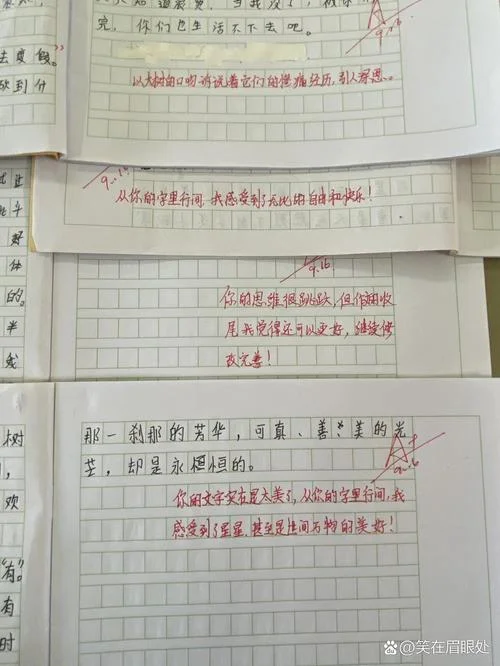 完,你们也生活不下去吧。
9.16
以大树的口吻诉说着它们的惨痛经历,引人深思。
去变假。”
砍到什
9.15
从你的字里行间,我感受到了无比的自由和快乐!
好
体
的。
半
9.16
你的思维很跳跃,但作文收
尾我觉得还可以更好,继续修
改完善!
那一刹那的芳华,可真、善、美的光
芒,却是永恒恒的。
A+
9.16
你的文字实在是太美了,从你的字里行间,我
感受到了星星,甚至是世间万物的美好!
树
欢
“有”。
有
时
@笑在眉眼处